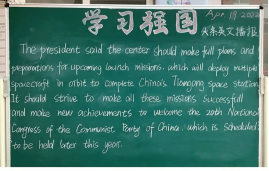 学习强国
Apr 18, 2022
头条英文播报
The president said the center should make full plans and
preparations for upcoming launch missions, which will deploy multiple
spacecraft in orbit to complete China's Tiangong space station.
It should strive to make all these missions successfull
and make new achievements to welcome the 20th National
Congress of the Communist Party of China, which is scheduled
to be held later this year.